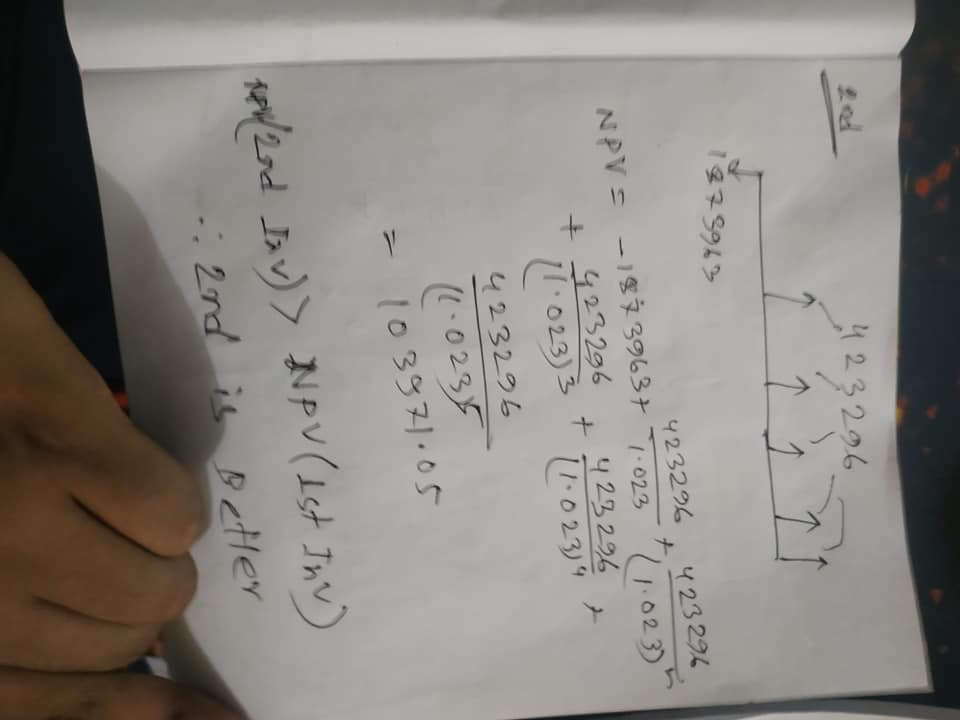 2nd
423296
1873963
NPV = -1873963 + 423296/1.023 + 423296/(1.023)2
+ 423296/(1.023)3 + 423296/(1.023)4 +
423296/(1.023)5
= 103971.05
NPV(2nd Inv) > NPV(1st Inv)
∴ 2nd is Better